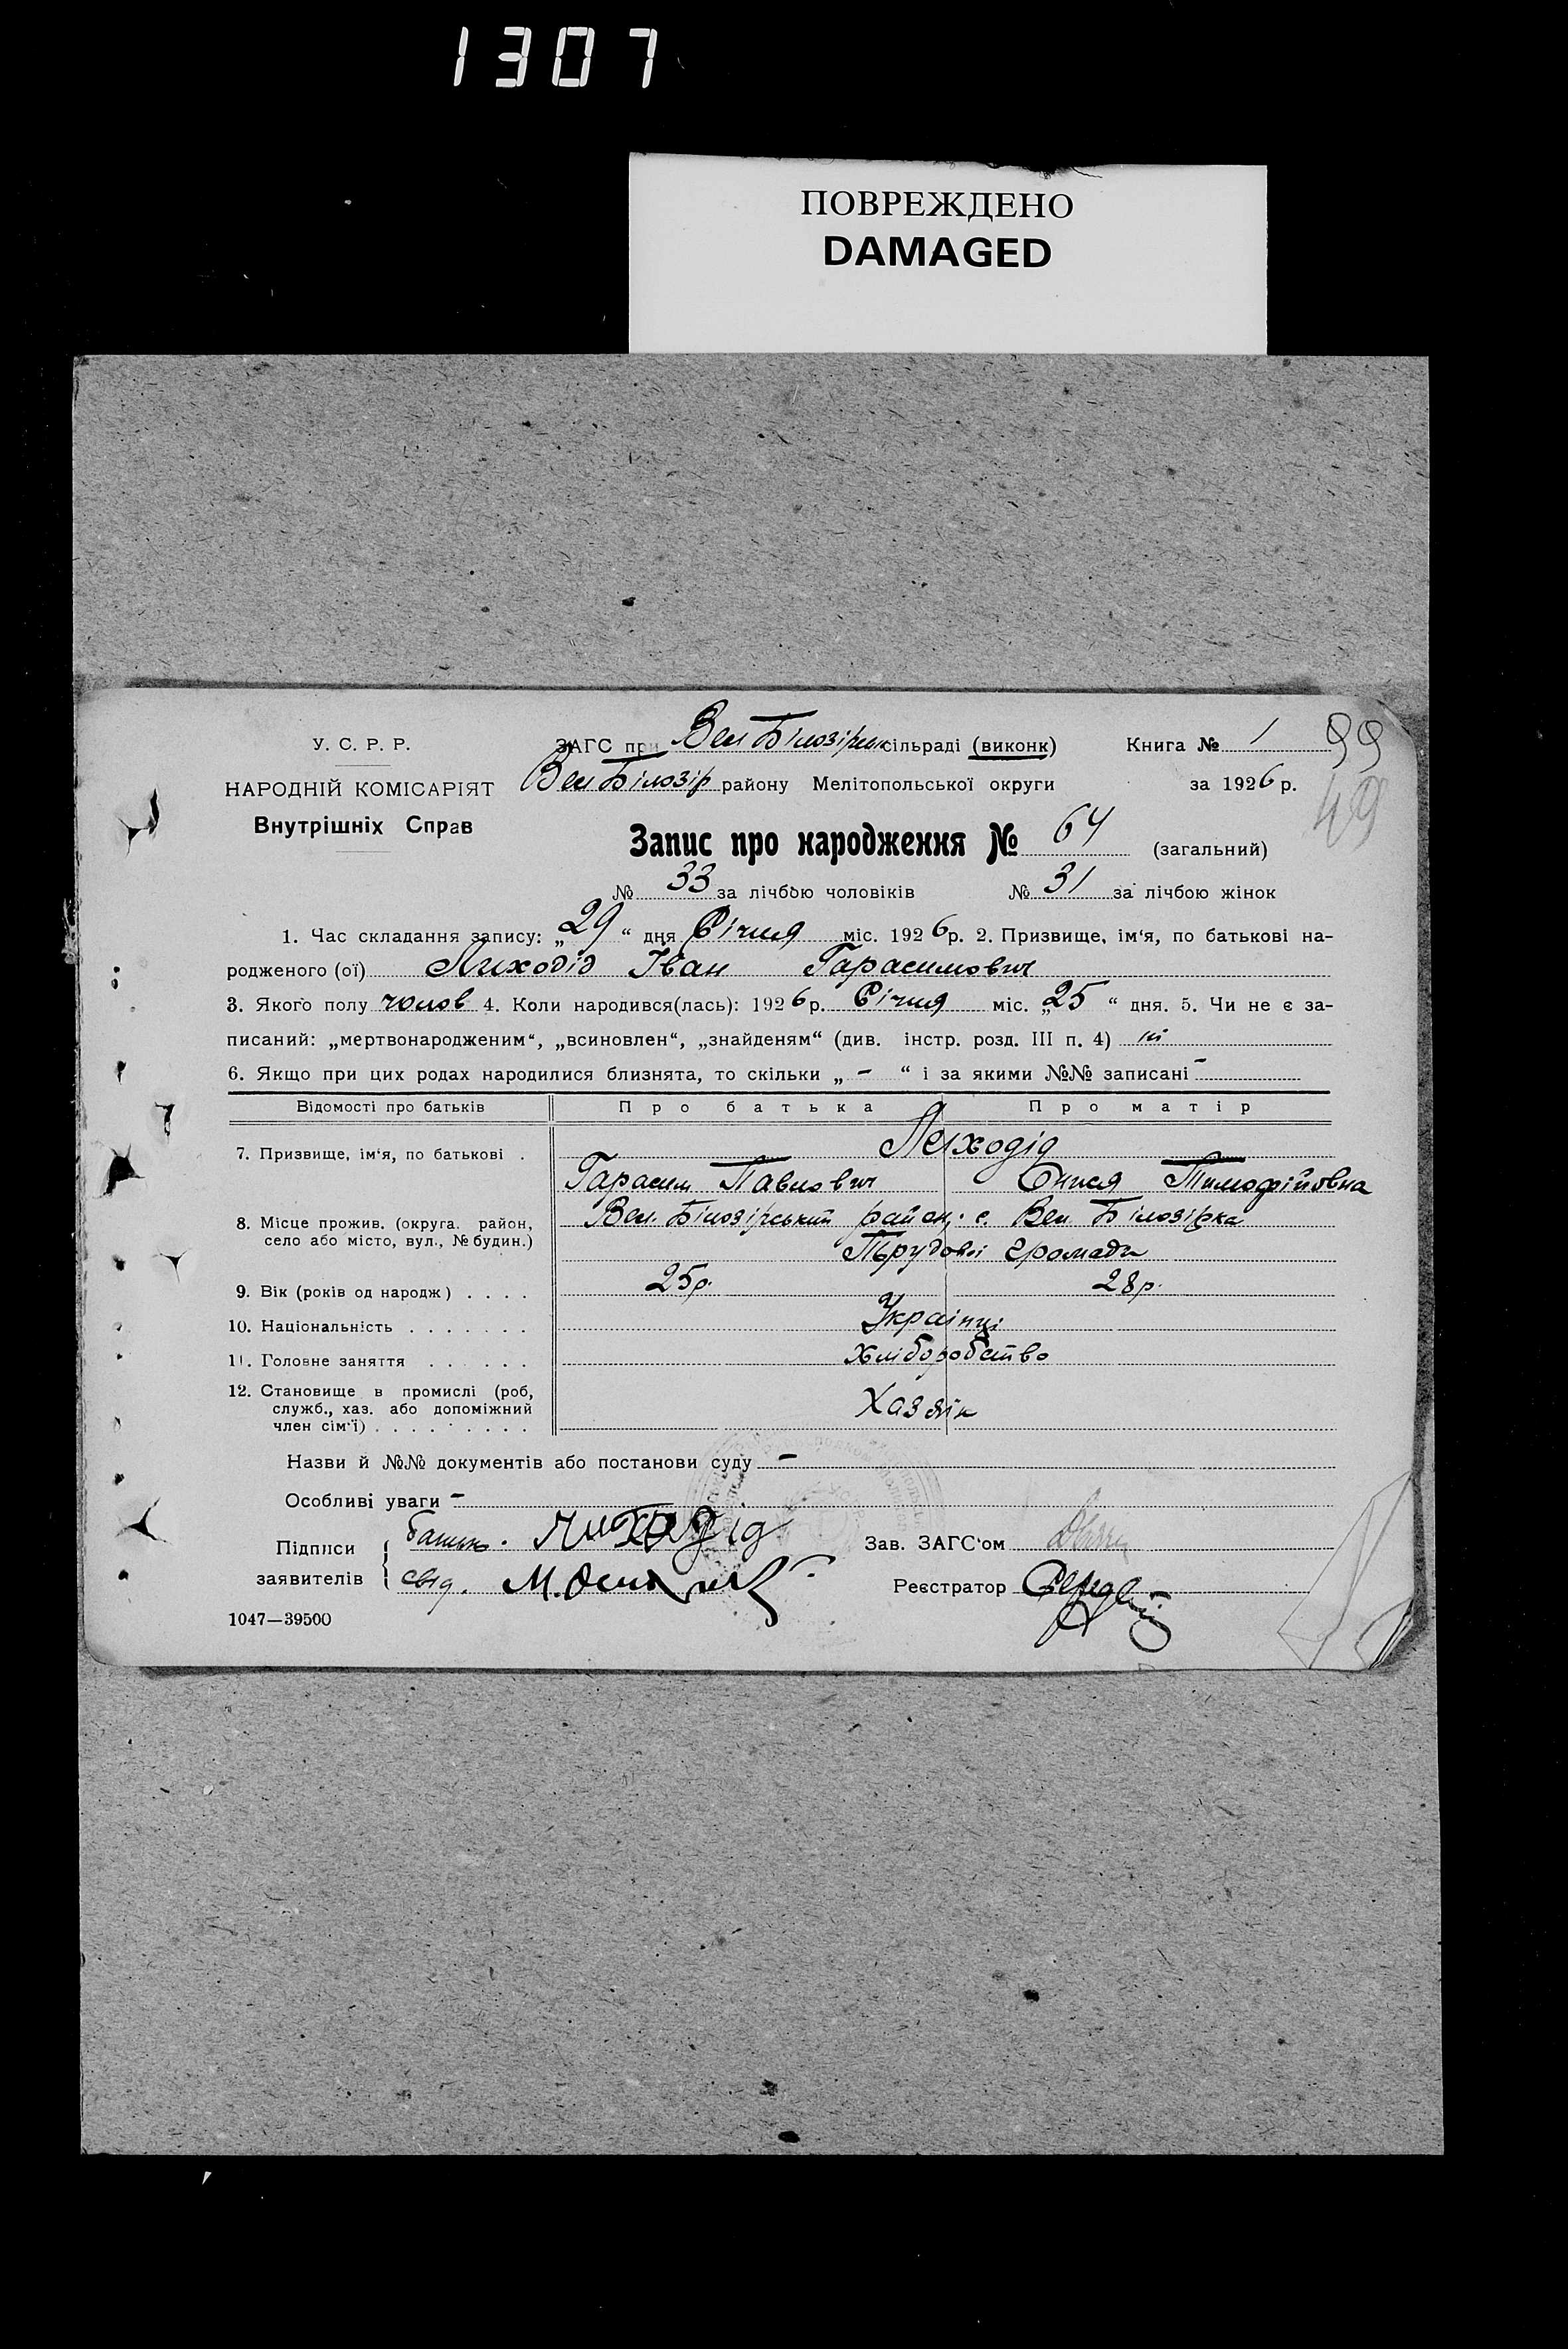 1307
ПОВРЕЖДЕНО
DAMAGED
У. С. Р. Р.
НАРОДНІЙ КОМІСАРІЯТ
Внутрішніх Справ
ЗАГС при Вел Білозірськ сільраді (виконк)
Книга № 1
99
Вел Білозір району Мелітопольської округи
за 1926 р.
49
Запис про народження № 64 (загальний)
№ 33 за лічбою чоловіків № 31 за лічбою жінок
1. Час складання запису: „29“ дня Січня міс. 1926 р. 2. Призвище, ім‘я, по батькові на-
родженого (ої) Лиходід Іван Гарасимович
3. Якого полу чолов 4. Коли народився(лась): 1926 р. Січня міс. „25“ дня. 5. Чи не є за-
писаний: „мертвонародженим“, „всиновлен“, „знайденям“ (див. інстр. розд. III п. 4) ні
6. Якщо при цих родах народилися близнята, то скільки „ - “ і за якими №№ записані -
Відомості про батьків Про батька Про матір
7. Призвище, ім‘я, по батькові . Лиходід
Гарасим Павлович Онися Тимофійовна
8. Місце прожив. (округа. район, село або місто, вул., № будин.)
Вел. Білозірський район, с. Вел. Білозірка
Трудової громади
9. Вік (років од народж) . . . . 25р. 28р.
10. Національність . . . . . . . Українці
11. Головне заняття . . . . . . хліборобство
12. Становище в промислі (роб,
служб., хаз. або допоміжний
член сім‘ї) . . . . . . . . . Хазяїн
Назви й №№ документів або постанови суду -
Особливі уваги -
Підписи
заявителів
батько. Лиходід
свід.
Зав. ЗАГС‘ом
Реєстратор
1047—39500